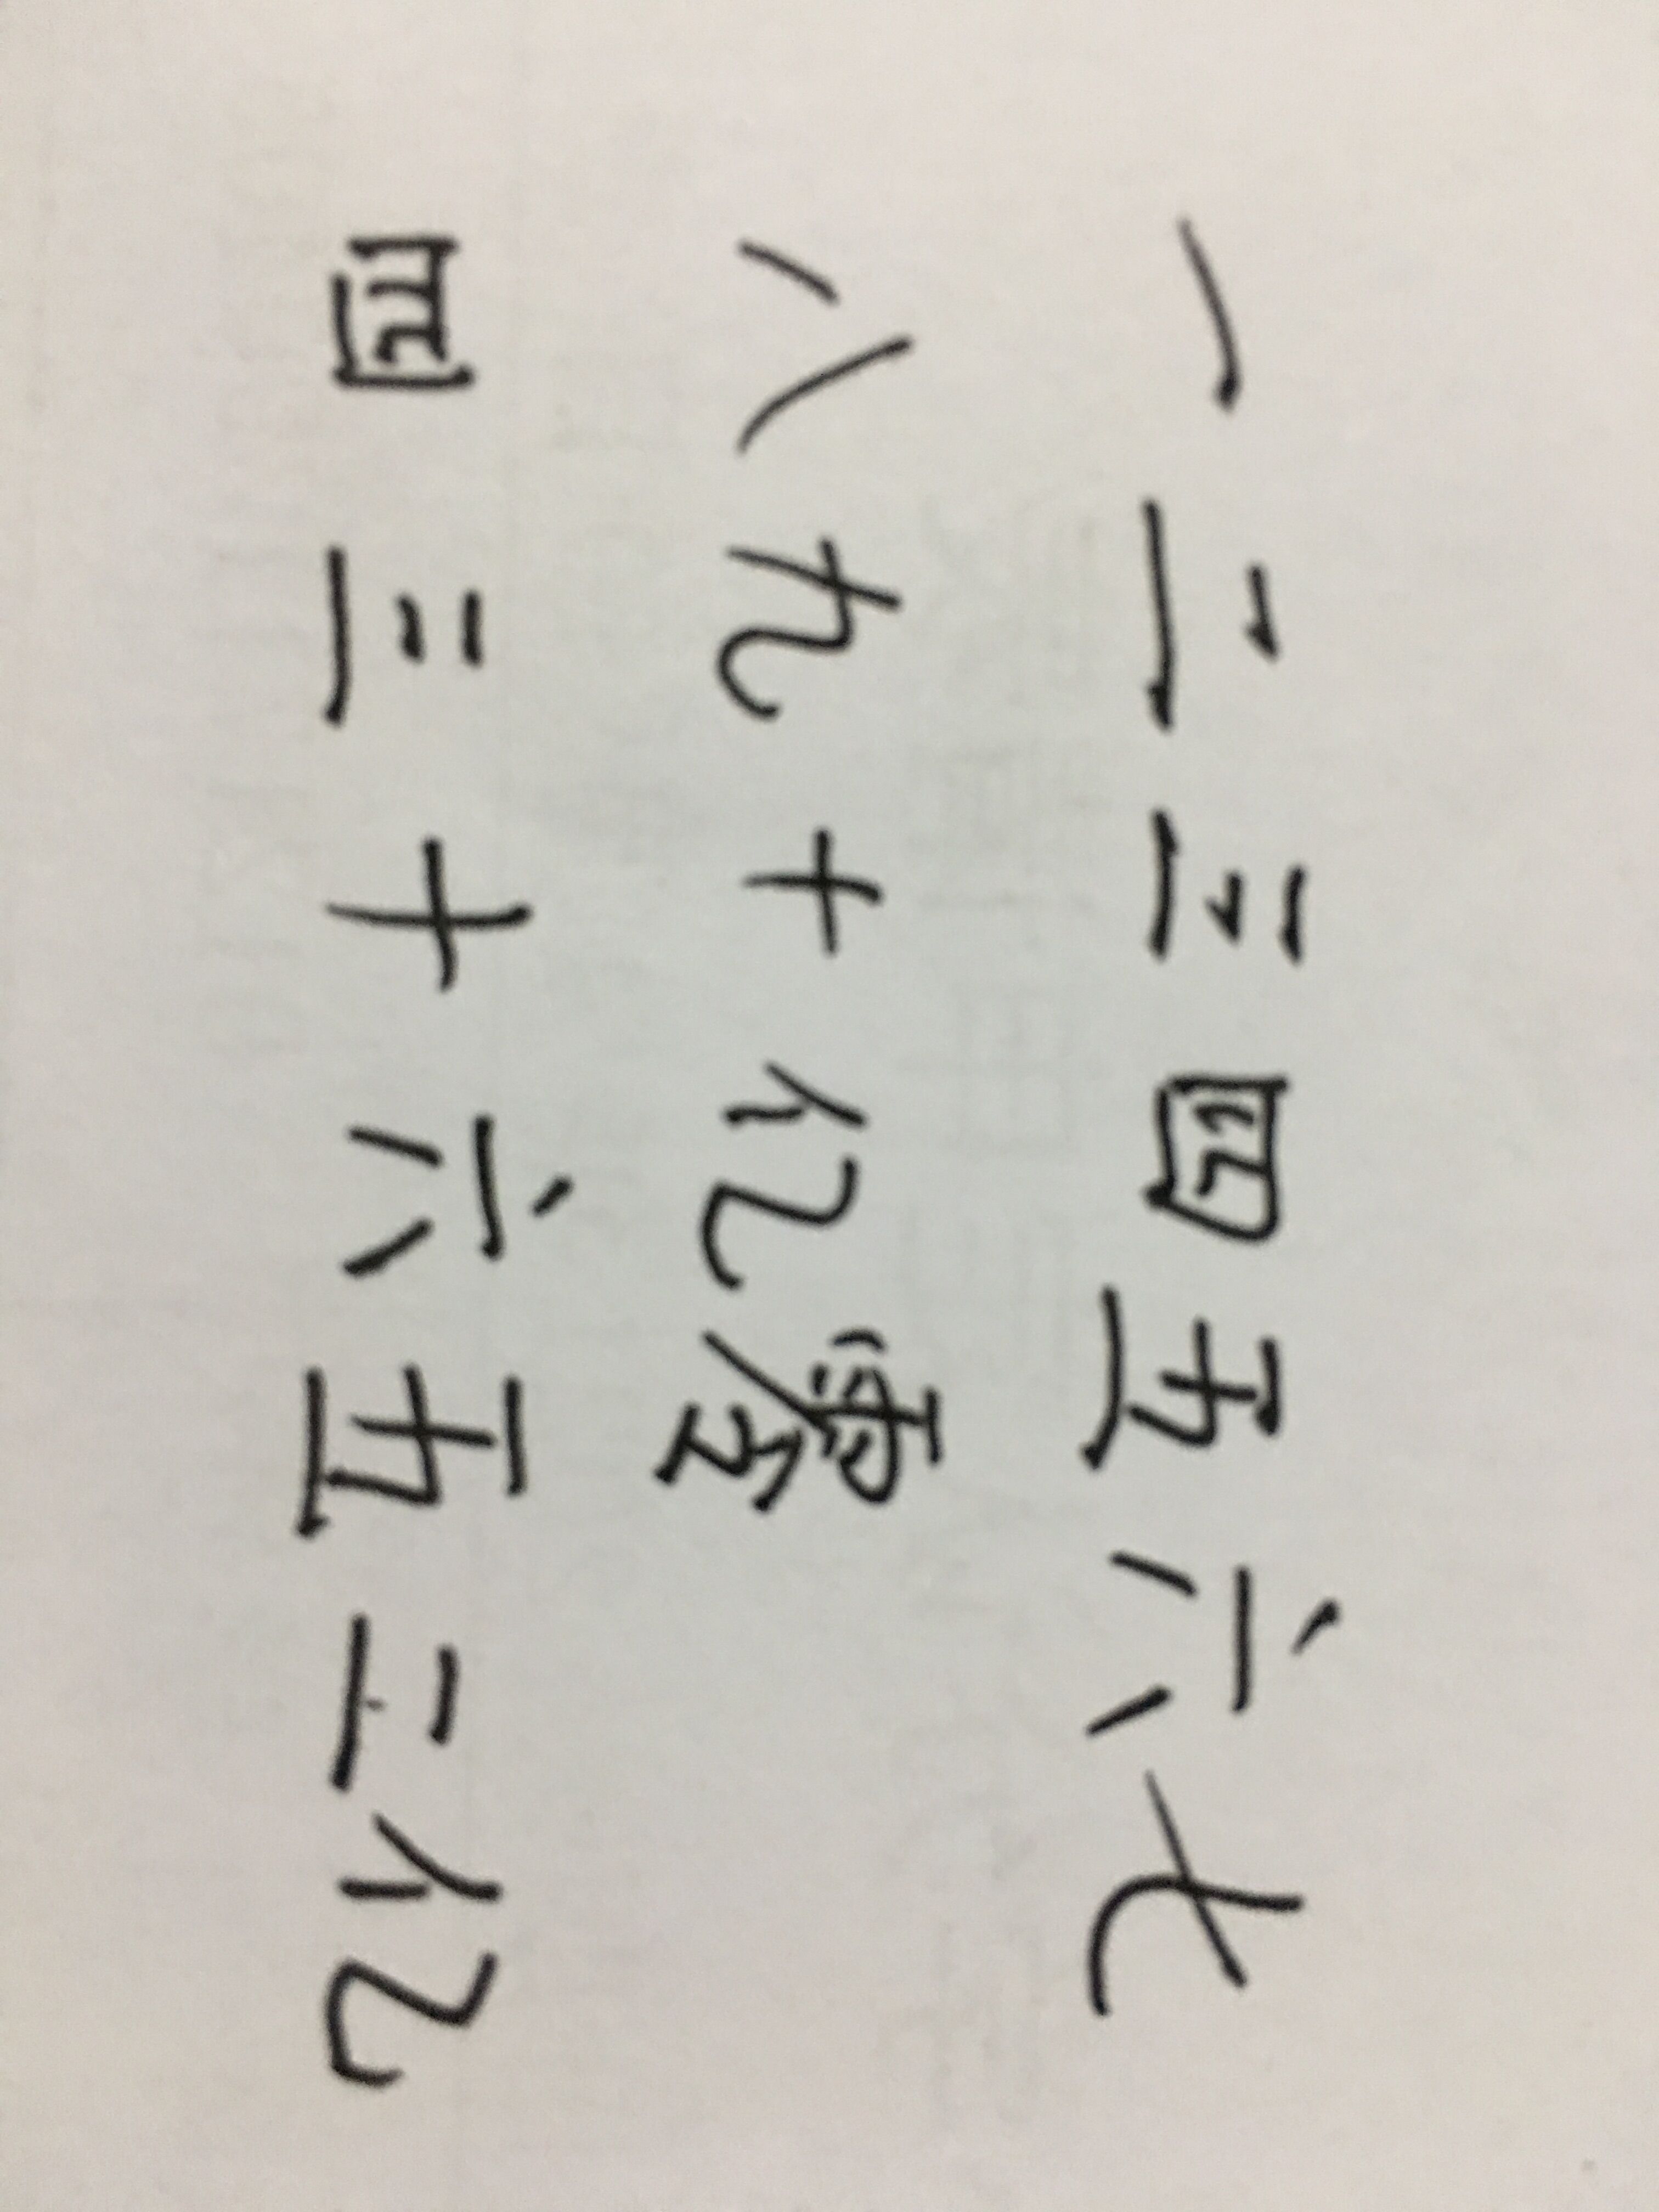 一二三四五六七
八九十亿零
四三十六五二亿